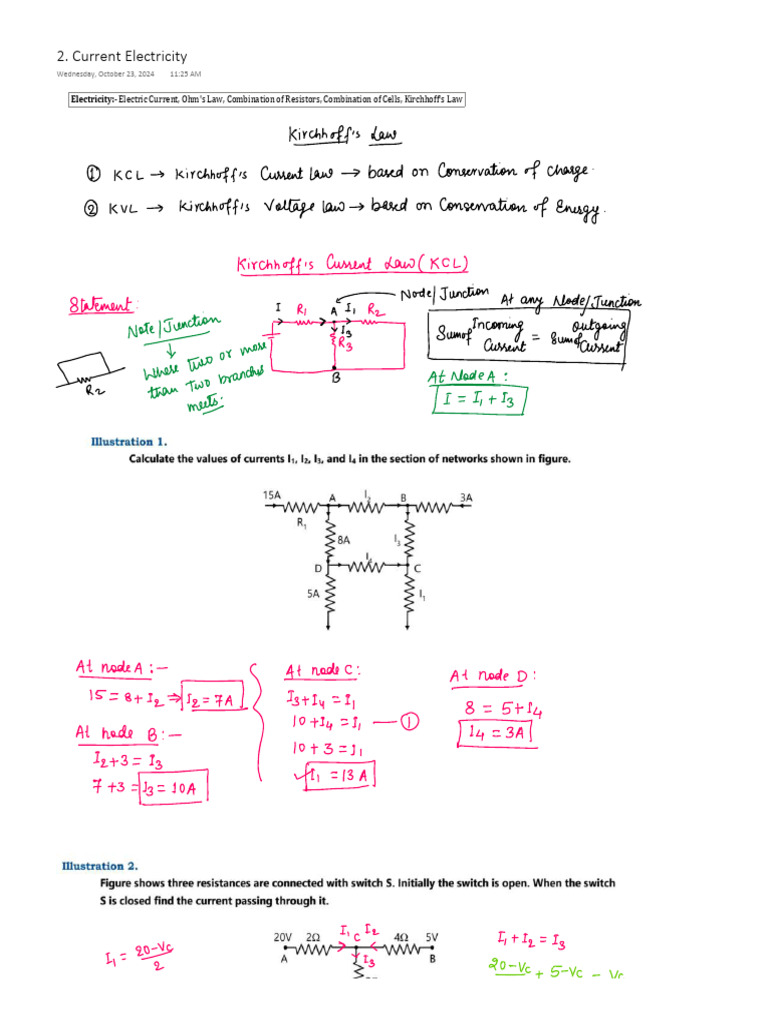 2. Current Electricity
Wednesday, October 23, 2024 11:25 AM
Electricity:- Electric Current, Ohm's Law, Combination of Resistors, Combination of Cells, Kirchhoff's Law
Kirchhoff's Law
① KCL → Kirchhoff's Current Law → based on Conservation of Charge.
② KVL → Kirchhoff's Voltage law → based on Conservation of Energy.
Kirchhoff's Current Law (KCL)
Statement:
Note/Junction
↓
Where two or more
than two branches
meets.
R2
I R1 A I1 R2
I3
R3
B
Node/Junction
At any Node/Junction
Sum of Incoming Current = Sum of Outgoing Current
At Node A:
I = I1 + I3
Illustration 1.
Calculate the values of currents I1, I2, I3, and I4 in the section of networks shown in figure.
15A A I2 B 3A
R1
8A I3
D I4 C
5A I1
At node A:-
15 = 8 + I2 ⇒ I2 = 7A
At node B:-
I2 + 3 = I3
7 + 3 = I3 = 10A
At node C:
I3 + I4 = I1
10 + I4 = I1 — ①
10 + 3 = I1
✓ I1 = 13 A
At node D:
8 = 5 + I4
I4 = 3A
Illustration 2.
Figure shows three resistances are connected with switch S. Initially the switch is open. When the switch
S is closed find the current passing through it.
I1 = 20-Vc / 2
20V 2Ω I1 C I2 4Ω 5V
A I3 B
I1 + I2 = I3
20-Vc + 5-Vc = Vc